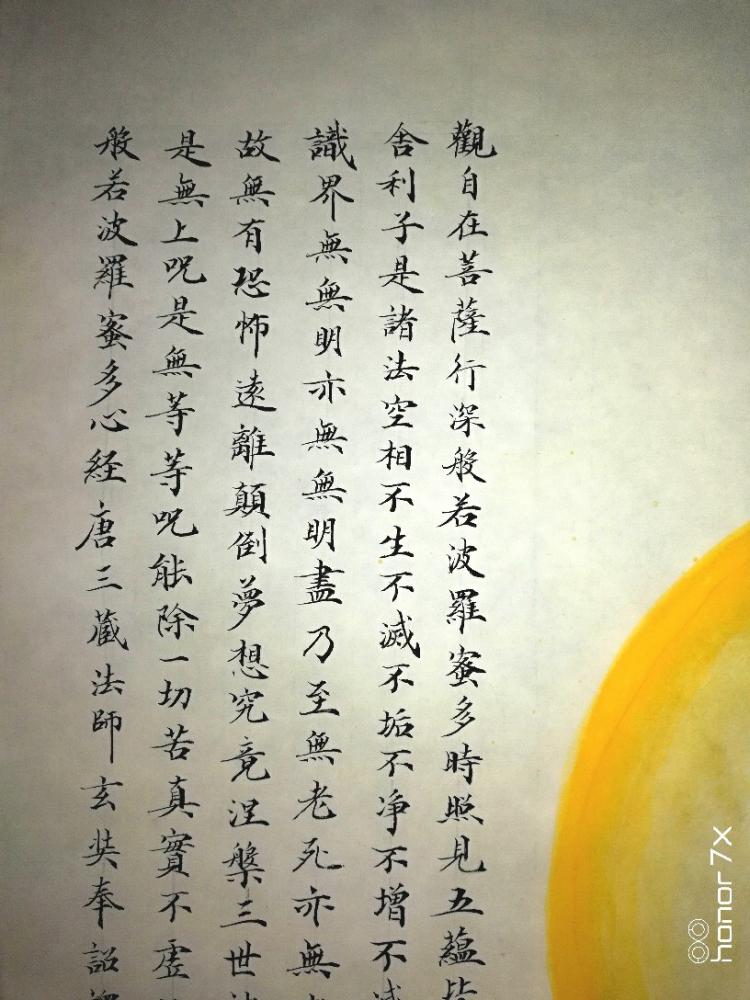 觀自在菩薩行深般若波羅蜜多時照見五蘊皆
舍利子是諸法空相不生不滅不垢不净不增不減
識界無無明亦無無明盡乃至無老死亦無
故無有恐怖遠離顛倒夢想究竟涅槃三世
是無上呪是無等等呪能除一切苦真實不虛
般若波羅蜜多心経唐三藏法師玄奘奉詔
honor 7X